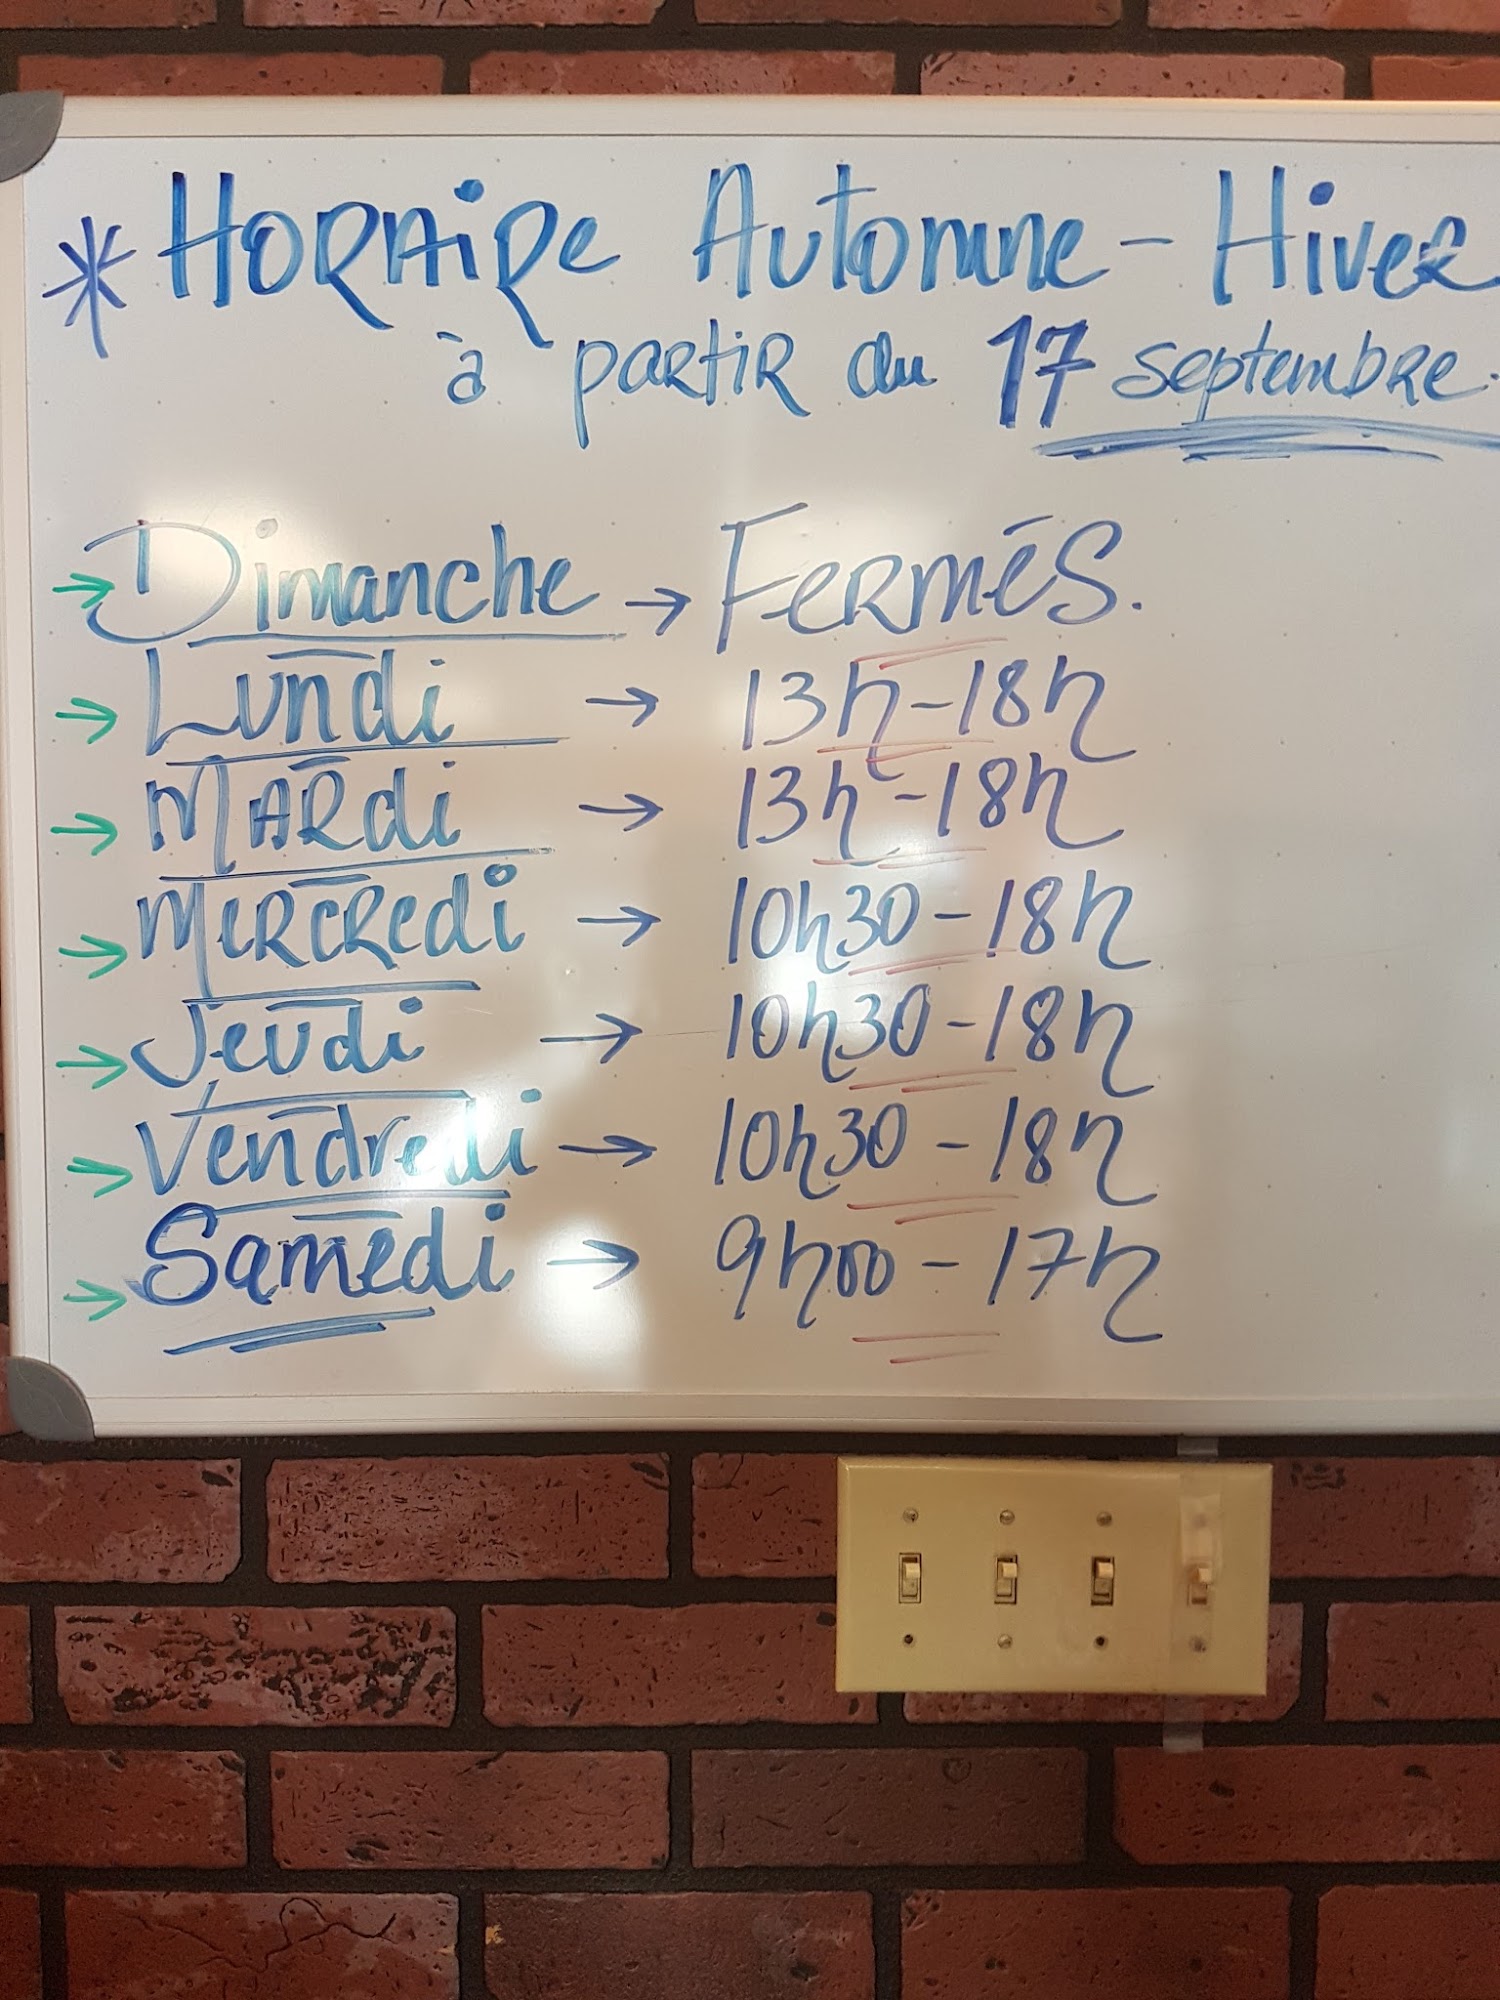 * HORAIRe Automne - Hiver
à partir du 17 septembre.
Dimanche → Fermés.
Lundi → 13h-18h
Mardi → 13h-18h
Mercredi → 10h30-18h
Jeudi → 10h30-18h
Vendredi → 10h30-18h
Samedi → 9h00-17h